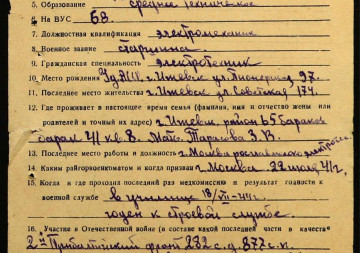 5. Образование среднее техническое
6. На ВУС 68.
7. Должностная квалификация электромеханик
8. Военное звание старшина.
9. Гражданская специальность электротехник
10. Место рождения Уд.АССР. г. Ижевск ул. Пионерская 97.
11. Последнее место жительства г. Ижевск ул. Советская 174.
12. Где проживает в настоящее время семья (фамилия, имя и отчество жены или
родителя и точный их адрес) г. Ижевск, район 65 бараков
барак 41 кв. 8. Мать Тарасова З. В.
13. Последнее место работы и должность г. Москва
14. Каким райгорвоенкоматом и когда призван г. Москва 22 июля 41 г.
15. Когда и где проходил последний раз медкомиссию и результат годности к
военной службе в училище 18/VII-44 г.
годен к строевой службе
16. Участие в Отечественной войне (в составе какой последней части и в качестве
2й Прибалтийский фронт 232 с.д. 877 с.п.